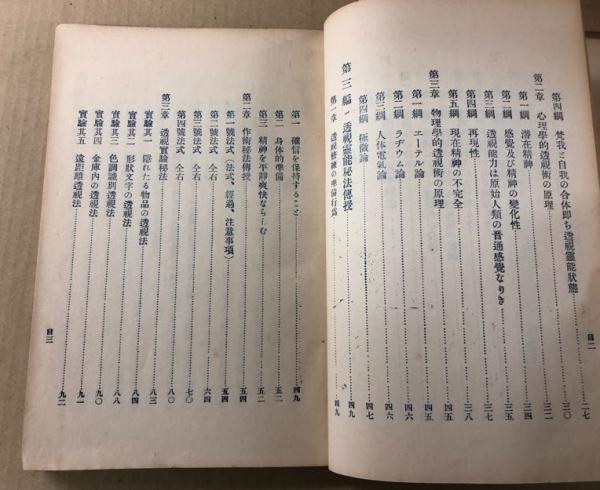 第四綱 梵我と自我の合体即ち透視靈能狀態……二七
第二章 心理學的透視術の原理……三〇
第一綱 潜在精神……三二
第二綱 感覺及び精神の變化性……三四
第三綱 透視能力は原始人類の普通感覺なりき……三五
第四綱 再現性……三七
第五綱 現在精神の不完全……三八
第三章 物理學的透視術の原理……四五
第一綱 エーテル論……四五
第二綱 ラヂウム論……四六
第三綱 人体電氣論……四六
第四綱 極微論……四七
第三編 透視靈能秘法傳授……四九
第一章 透視修練の準備行爲……四九
目二
第一 確信を保持すること……四九
第二 身体的準備……五二
第三 精神を平靜爽快ならしむ……五二
第二章 作術秘法傳授……五四
第一號法式(法式、經過、注意事項)……五四
第二號法式 仝右……六四
第三號法式 仝右……七〇
第四號法式 仝右……八〇
第三章 透視實驗秘法
實驗其一 隱れたる物品の透視法……八三
實驗其二 形狀文字の透視法……八四
實驗其三 色調識別透視法……八八
實驗其四 金庫内の透視法……九〇
實驗其五 遠距離透視法……九一
九二
目三